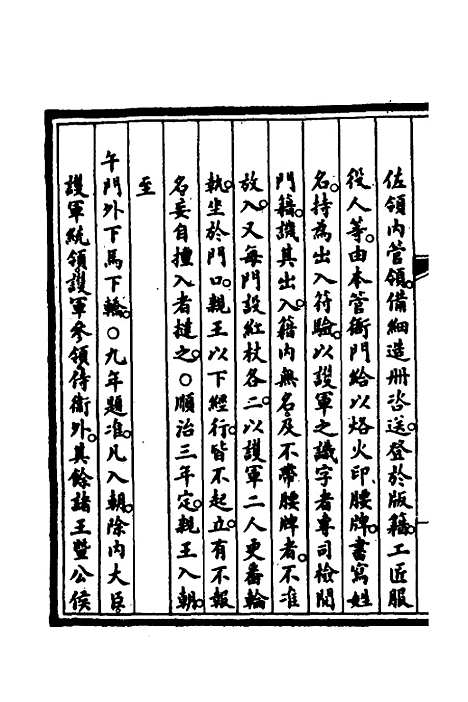 佐領內管領。備細造册咨送。登於版籍。工匠服
役人等。由本管衙門給以烙火印腰牌。書寫姓
名。持為出入符驗。以護軍之識字者專司檢閱
門籍。譏其出入。籍內無名。及不帶腰牌者。不准
放入。又每門設紅杖各二。以護軍二人更番輪
執。坐於門口。親王以下經行。皆不起立。有不報
名妄自擅入者撻之。○順治三年定。親王入朝。
至
午門外下馬下轎。○九年題准。凡入朝。除內大臣。
護軍統領。護軍參領。侍衛外。其餘諸王暨公侯